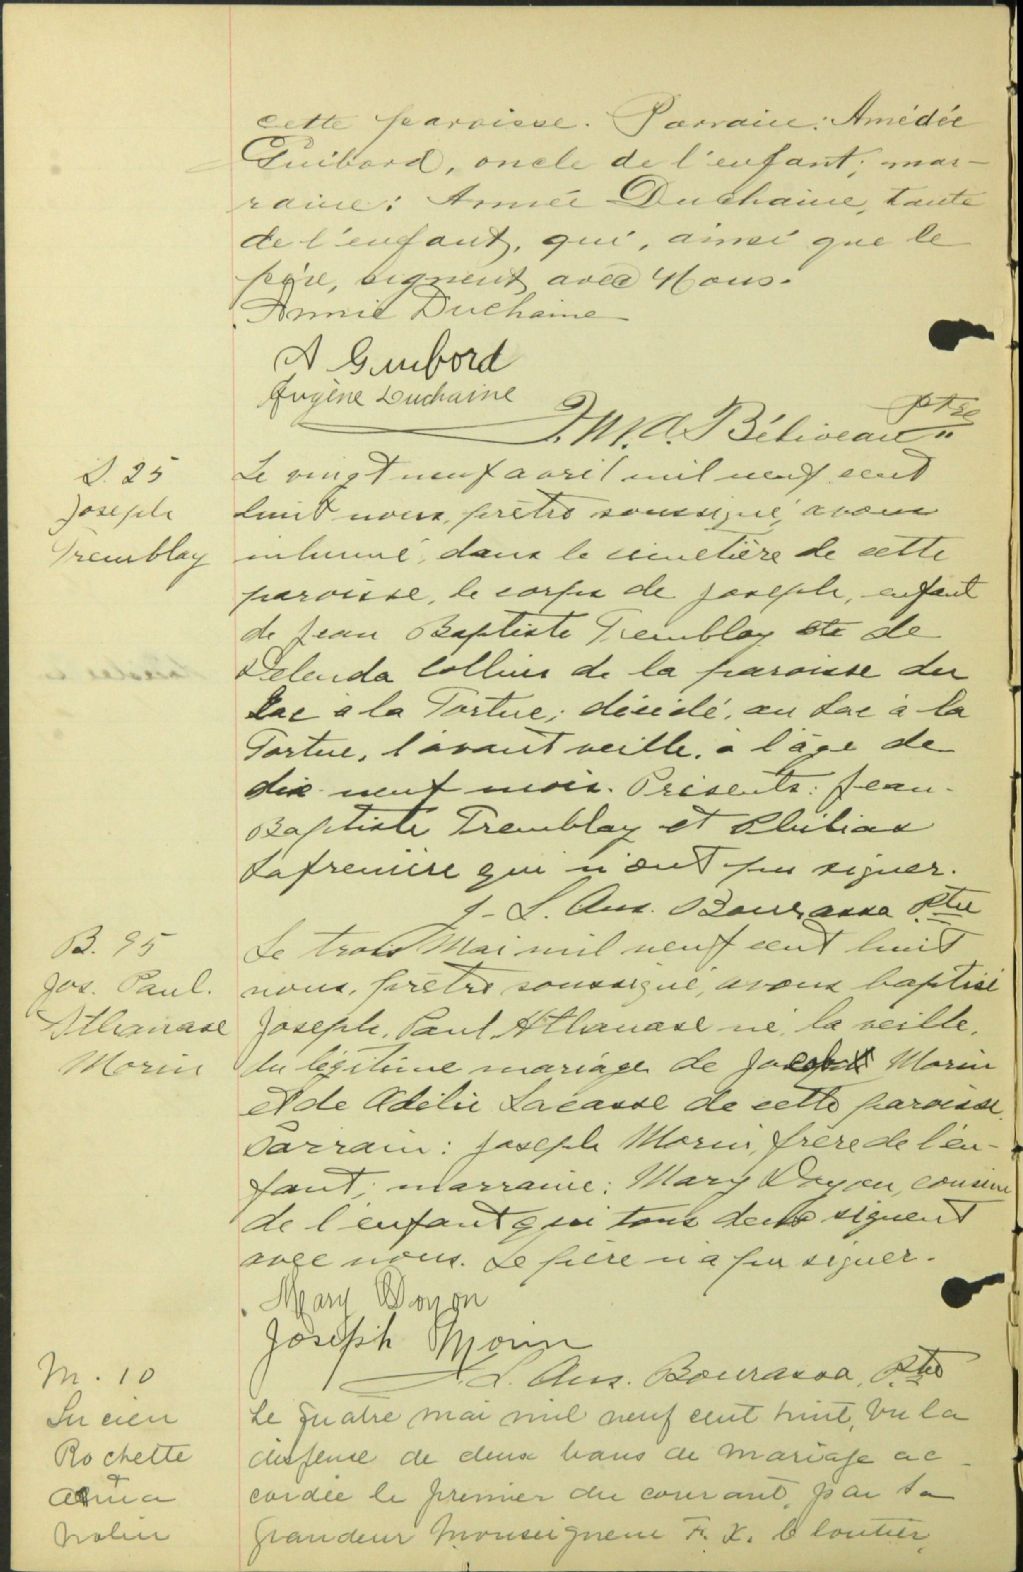 cette paroisse. Parrain: Amédée
Guibord, oncle de l'enfant; mar-
raine: Annie Duchaine, tante
de l'enfant, qui, ainsi que le
père, signent avec Nous.
Annie Duchaine
A Guibord
Eugène Duchaine
ptre
J. M. A. Béliveau "
S. 25
Joseph
Tremblay
Le vingt neuf avril mil neuf cent
huit nous, prêtre soussigné, avons
inhumé, dans le cimetière de cette
paroisse, le corps de Joseph, enfant
de Jean Baptiste Tremblay et de
Delenda Collins de la paroisse du
Lac à la Tortue; décédé, au Lac à la
Tortue, l'avant veille, à l'âge de
dix neuf mois. Présents: Jean-
Baptiste Tremblay et Philias
Lafrenière qui n'ont pu signer.
J- L. Aus. Bourassa Ptre
B. 95
Jos. Paul.
Athanase
Morin
Le trois Mai mil neuf cent huit
nous, prêtre soussigné, avons baptisé
Joseph, Paul, Athanase né, la veille,
du légitime mariage de Joseph Morin
et de Adélie Lacasse de cette paroisse.
Parrain: Joseph Morin, frère de l'en-
fant; marraine: Mary Doyon, cousine
de l'enfant qui tous deux signent
avec nous. Le père n'a pu signer.
Mary Doyon
Joseph Morin
J. L. Aus. Bourassa, Ptre
M. 10
Lucien
Rochette
&
Nolin
Le quatre mai mil neuf cent huit, Vu la
dispense de deux bans de mariage ac-
cordée le premier du courant, par Sa
Grandeur Monseigneur F. X. Cloutier,